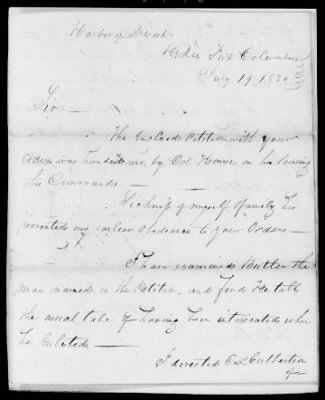 Harbor of N York
Hd Qrs Fort Columbus
July 19 1820
Sir
The Enclosed Petition with your
Orders was handed to me, by Col House on his leaving
this Command. —
Sickness of myself & family has
prevented my earlier obedience to your Orders —
I have examined Butler the
man named in the Petition, and find he tells
the usual tale of having been intoxicated when
he Enlisted —
I directed Cat Culbertson